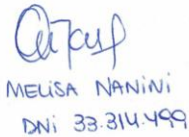 MELISA NANINI
DNI 33.314.499